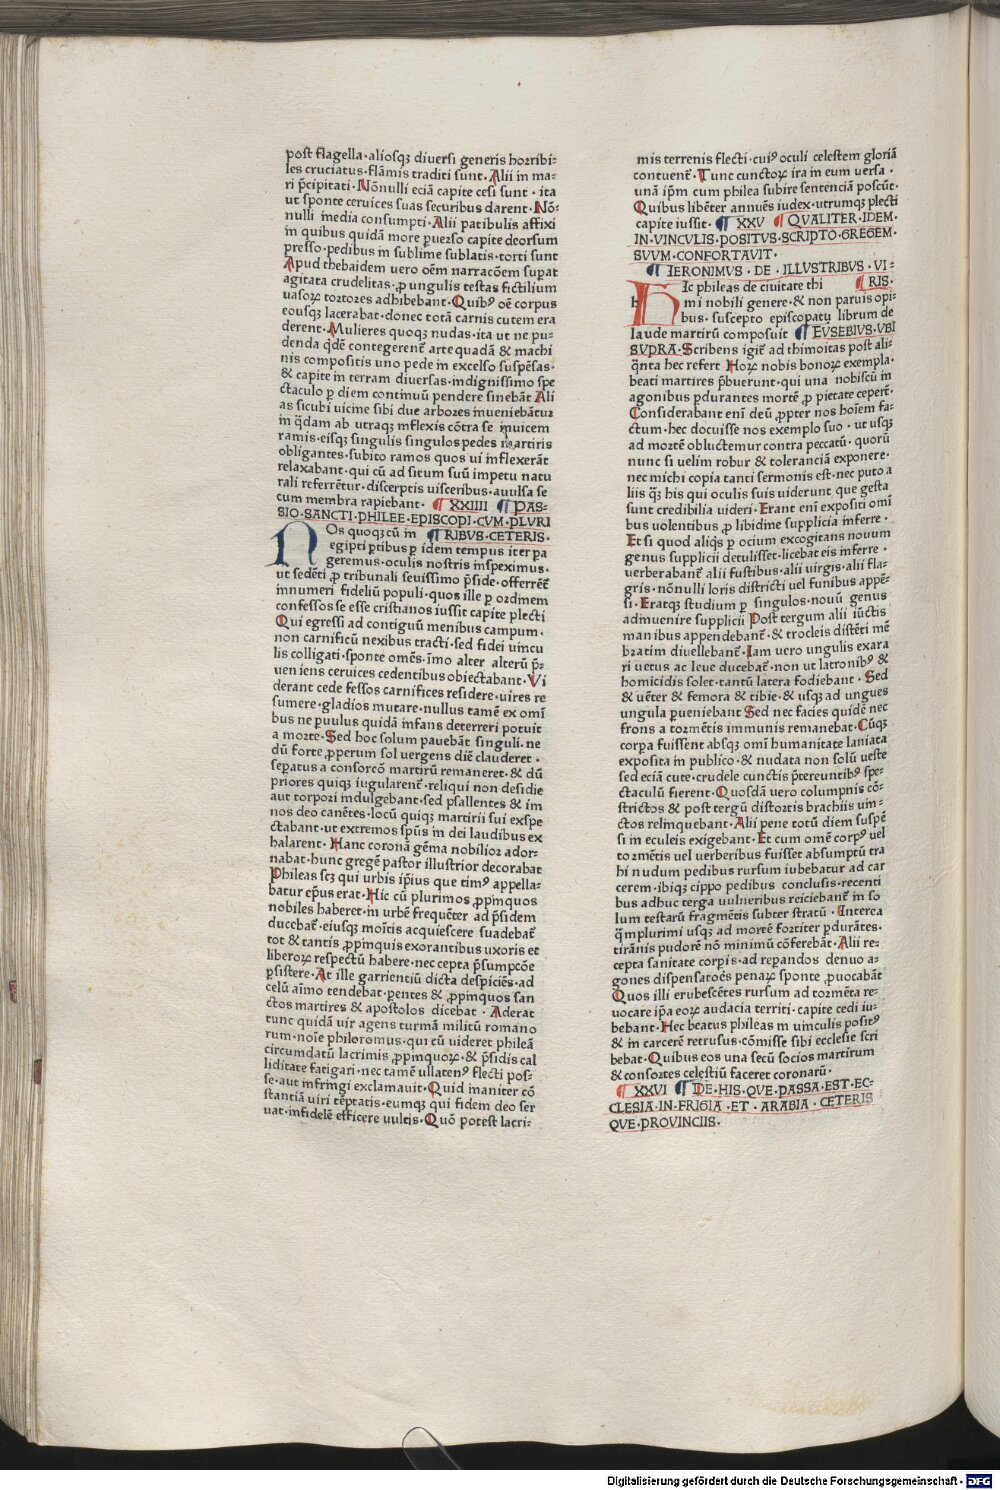 post flagella·aliosqꝫ diuersi generis horribi-
les cruciatus·flāmis traditi sunt·Alii in ma-
ri p̄cipitati·Nōnulli eciā capite cesi sunt·ita
ut sponte ceruices suas securibus darent·Nō-
nulli inedia consumpti·Alii patibulis affixi
in quibus quidā more ꝑuerso capite deorsum
presso·pedibus in sublime sublatis·torti sunt
Apud thebaidem uero oēm narracōem supat
agitata crudelitas·ꝓ ungulis testas fictilium
uasoꝝ tortores adhibebant·Quibꝰ oē corpus
eousqꝫ lacerabat·donec totā carnis cutem era
derent·Mulieres quoqꝫ nudas·ita ut ne pu-
denda q̄dē contegerent̄ arte quadā & machi
nis compositis uno pede in excelso suspēsas·
& capite in terram diuersas·indignissimo spe
ctaculo ꝑ diem continuū pendere sinebāt Ali
as sicubi uicine sibi due arbores inueniebātur
in q̄dam ab utraqꝫ inflexis cōtra se inuicem
ramis·eisqꝫ singulis singulos pedes martiris
obligantes·subito ramos quos ui inflexerāt
relaxabant·qui cū ad situm suū impetu natu
rali referrētur·discerptis uisceribus·auulsa se
cum membra rapiebant· ¶ XXIIII ¶ PAS-
SIO·SANCTI·PHILEE·EPISCOPI·CVM·PLVRI
NOs quoqꝫ cū in ¶ RIBVS·CETERIS·
egipti ꝑtibus ꝑ idem tempus iter pa
geremus·oculis nostris inspeximus·
ut sedēti ꝓ tribunali seuissimo p̄side·offerrēt̄
innumeri fideliū populi·quos ille ꝑ ordinem
confessos se esse cristianos iussit capite plecti
Qui egressi ad contiguū menibus campum·
non carnificū nexibus tracti·sed fidei uincu
lis colligati·sponte omēs·īmo alter alterū p̄-
ueniens ceruices cedentibus obiectabant·Vi
derant cede fessos carnifices residere·uires re
sumere·gladios mutare·nullus tamē ex omī
bus ne puulus quidā infans deterreri potuit
a morte·Sed hoc solum pauebāt singuli·ne
dū forte ꝓperum sol uergens diē clauderet·
sepatus a consorcō martirū remaneret·& dū
priores quiqꝫ iugularent̄·reliqui non desidie
aut torpori indulgebant·sed psallentes & im
nos deo canētes·locū quiqꝫ martirii sui exspe
ctabant·ut extremos spūs in dei laudibus ex
halarent·Hanc coronā gēma nobilior ador-
nabat·hunc gregē pastor illustrior decorabat
Phileas scꝫ qui urbis ip̄ius que timꝰ appella-
batur ep̄us erat·Hic cū plurimos ꝓpinquos
nobiles haberet·in urbē frequēter ad p̄sidem
duccbat̄·eiusqꝫ moītis acquiescere suadebat̄
tot & tantis ꝓpinquis exorantibus uxoris et
liberoꝝ respectū habere·nec cepta p̄sumpcōe
ꝑsistere·At ille garrientiū dicta despiciēs·ad
celū aīmo tendebat·ꝑentes & ꝓpinquos san
ctos martires & apostolos dicebat·Aderat
tunc quidā uir agens turmā militū romano
rum·noīe philoromus·qui cū uideret phileā
circumdatū lacrimis ꝓpinquoꝝ·& p̄sidis cal
liditate fatigari·nec tamē ullatenꝰ flecti pos-
se·aut infringi exclamauit·Quid inaniter cō
stantiā uiri tēptatis·eumqꝫ qui fidem deo ser
uat·infidelē efficere uultis·Quō potest lacri-
mis terrenis flecti·cuiꝰ oculi celestem gloriā
contuent̄·Tunc cunctoꝝ ira in eum uersa·
unā ip̄m cum philea subire sentenciā poscūt·
Quibus libēter annuēs iudex·utrumqꝫ plecti
capite iussit· ¶ XXV ¶ QVALITER·IDEM·
IN·VINCVLIS·POSITVS·SCRIPTO·GREGEM·
SVVM·CONFORTAVIT·
¶ IERONIMVS·DE·ILLVSTRIBVS·VI-
HIc phileas de ciuitate thi ¶ RIS·
mi nobili genere·& non paruis opi
bus·suscepto episcopatu librum de
laude martirū composuit ¶ EVSEBIVS·VBI
SVPRA·Scribens igit̄ ad thimoitas post ali-
q̄nta hec refert Hoꝝ nobis bonoꝝ exempla·
beati martires p̄buerunt·qui una nobiscū in
agonibus pdurantes mortē ꝓ pietate cepert̄·
Considerabant enī deū ꝓpter nos hoīem fa-
ctum·hec docuisse nos exemplo suo·ut usqꝫ
ad mortē obluctemur contra peccatū·quorū
nunc si uelim robur & toleranciā exponere·
nec michi copia tanti sermonis est·nec puto a
liis qꝫ his qui oculis suis uiderunt que gesta
sunt credibilia uideri·Erant enī expositi omī
bus uolentibus ꝓ libidine supplicia inferre·
Et si quod aliqs ꝑ ocium excogitans nouum
genus supplicii detulisset·licebat eis inferre·
uerberabant̄ alii fustibus·alii uirgis·alii fla-
gris·nōnulli loris districti uel funibus appē-
si·Eratqꝫ studium ꝑ singulos·nouū genus
adinuenire supplicii Post tergum alii iūctis
manibus appendebant̄·& trocleis distēti mē
bratim diuellebant̄·Iam uero ungulis exara
ri uetus ac leue ducebat̄·non ut latronibꝰ &
homicidis solet·tantū latera fodiebant·Sed
& uēter & femora & tibie·& usqꝫ ad ungues
ungula ꝑueniebant Sed nec facies quidē nec
frons a tormētis immunis remanebat·Cūqꝫ
corpa fuissent absqꝫ omī humanitate laniata
exposita in publico·& nudata non solū ueste
sed eciā cute·crudele cunctis p̄tereuntibꝰ spe-
ctaculū fierent·Quosdā uero columpnis cō-
strictos & post tergū distortis brachiis uin-
ctos relinquebant·Alii pene totū diem suspē
si in eculeis exigebant·Et cum omē corpꝰ uel
tormētis uel uerberibus fuisset absumptū tra
hi nudum pedibus rursum iubebatur ad car
cerem·ibiqꝫ cippo pedibus conclusis·recenti
bus adhuc terga uulneribus reiciebant̄ in so
lum testarū fragmētis subter stratū·Interea
q̄mplurimi usqꝫ ad mortē fortiter ꝑdurātes·
tirānis pudorē nō minimū cōferebāt·Alii re-
cepta sanitate corpis·ad repandos denuo a-
gones dispensatoēs penaꝝ sponte ꝓuocabāt
Quos illi erubescētes rursum ad tormēta re-
uocare ip̄a eoꝝ audacia territi·capite cedi iu-
bebant·Hec beatus phileas in uinculis positꝰ
& in carcerē retrusus·cōmisse sibi ecclesie scri
bebat·Quibus eos una secū socios martirum
& consortes celestiū faceret coronarū·
¶ XXVI ¶ DE·HIS·QVE·PASSA·EST·EC-
CLESIA·IN·FRIGIA·ET·ARABIA·CETERIS
QVE·PROVINCIIS·
Digitalisierung gefördert durch die Deutsche Forschungsgemeinschaft · DFG